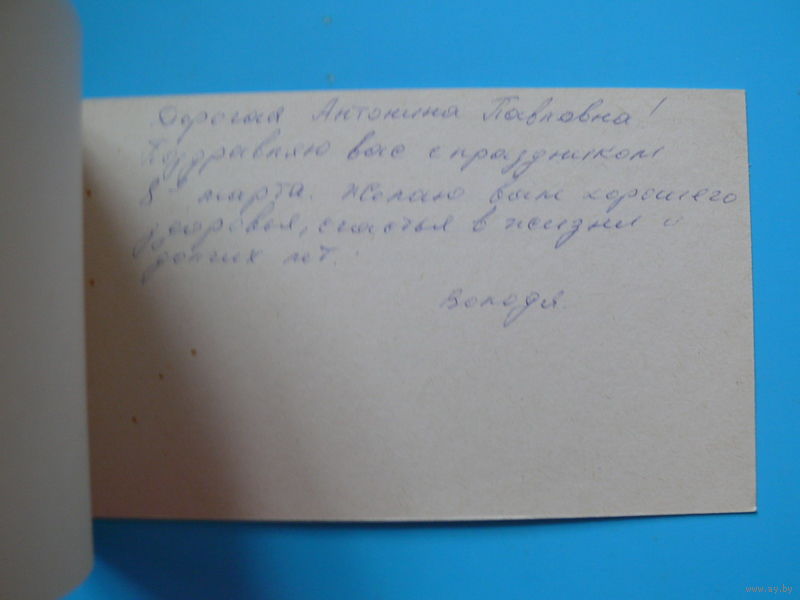 Дорогая Антонина Павловна!
Поздравляю вас с праздником
8е марта. Желаю вам хорошего
здоровья, счастья в жизни и
долгих лет.
Володя.
www.ay.by